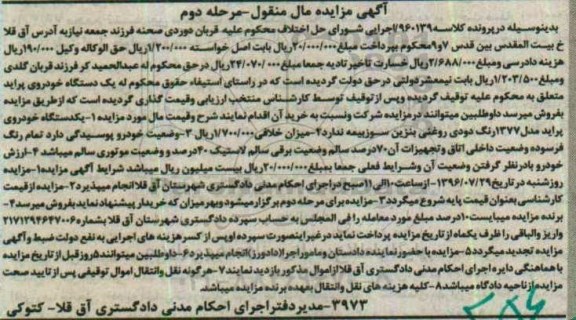 آگهی مزایده مال منقول-مرحله دوم
بدینوسیله در پرونده کلاسه ۹۶۰۱۳۹/اجرایی شورای حل اختلاف محکوم علیه قربان دوردی صحنه فرزند جمعه نیاز به آدرس آق قلا
خ بیت المقدس بین قدس ۷و۹محکوم بپرداخت مبلغ ۲۰/۰۰۰/۰۰۰ریال بابت اصل خواسته ۱/۲۰۰/۰۰۰ریال حق الوکاله وکیل ۱۹۰/۰۰۰ریال
هزینه دادرسی ومبلغ ۲/۶۸۸/۰۰۰ریال خسارت تاخیر تادیه جمعا مبلغ ۲۴/۰۷۰/۰۰۰ریال در حق محکوم له عبدالحمید کر فرزند قربان گلدی
ومبلغ ۱/۲۰۳/۵۰۰ریال بابت نیمعشر دولتی در حق دولت گردیده است که در راستای استیفاء حقوق محکوم له یک دستگاه خودروی پراید
متعلق به محکوم علیه توقیف گردیده وپس از توقیف توسط کارشناس منتخب ارزیابی وقیمت گذاری گردیده است که از طریق مزایده
بفروش میرسد داوطلبین میتوانند در مزایده شرکت ونسبت به خرید آن اقدام نمایند شرح وقیمت مال مورد مزایده ۱-یکدستگاه خودروی
پراید مدل۱۳۷۷رنگ دودی روغنی بنزین سوز بیمه ندارد۲-میزان خلافی ۱/۷۰۰/۰۰۰ریال ۳-وضعیت خودرو پوسیدگی دارد تمام رنگ
فرسوده وضعیت داخلی اتاق وتجهیزات آن ۷۰درصد سالم وضعیت برقی سالم لاستیک ۴۰درصد و وضعیت موتوری سالم میباشد ۴-ارزش
خودرو بادر نظر گرفتن وضعیت آن وشرایط فعلی جمعا بمبلغ ۲۰/۰۰۰/۰۰۰ریال بیست میلیون ریال میباشد شرایط آگهی مزایده:۱-مزایده
روز شنبه در تاریخ ۱۳۹۶/۰۷/۲۹ -از ساعت ۱۰الی ۱۱صبح در اجرای احکام مدنی دادگستری شهرستان آق قلا انجام میپذیرد۲-مزایده از قیمت
کارشناسی بعنوان قیمت پایه شروع میگردد۳-مزایده برای مرحله دوم برگزار میشود وبهر میزان که خریدار پیشنهاد نماید بفروش میرسد۴-
برنده مزایده میبایست ۱۰درصد مبلغ مورد معامله را فی المجلس به حساب سپرده دادگستری شهرستان آق قلا بشماره ۲۱۷۱۲۹۴۶۴۷۰۰۶
واریز والباقی را ظرف یکماه از تاریخ مزایده پرداخت نماید در غیر اینصورت سپرده او پس از کسر هزینه های اجرایی به نفع دولت ضبط وآگهی
مزایده تجدید میگردد۵-مزایده با حضور نماینده دادستان ومامور اجرا(دادورز)انجام میپذیرد۶-داوطلبین میتوانند ۵روز قبل از تاریخ مزایده
با هماهنگی دایره اجرای احکام مدنی دادگستری آق قلا از اموال مذکور بازدید نمایند۷-هر گونه نقل وانتقال اموال توقیفی پس از تایید صحت
مزایده از ناحیه دادگاه میباشد۸-کلیه هزینه های نقل وانتقال بعهده برنده مزایده میباشد.
۳۹۷۳-مدیر دفتر اجرای احکام مدنی دادگستری آق قلا- کتوکی